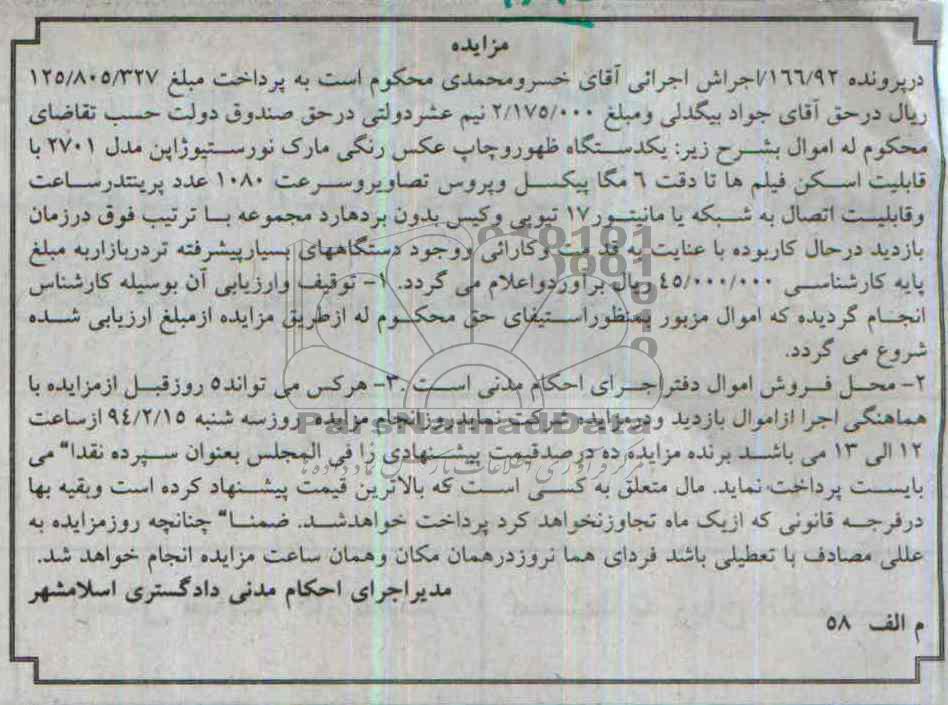 مزایده
درپرونده ۱۶۶/۹۲/اجراش اجرائی آقای خسرومحمدی محکوم است به پرداخت مبلغ ۱۲۵/۸۰۵/۳۲۷
ریال درحق آقای جواد بیگدلی ومبلغ ۲/۱۷۵/۰۰۰ نیم عشردولتی درحق صندوق دولت حسب تقاضای
محکوم له اموال بشرح زیر: یکدستگاه ظهوروچاپ عکس رنگی مارک نورستیوژاپن مدل ۲۷۰۱ با
قابلیت اسکن فیلم ها تا دقت ۶ مگا پیکسل وپروس تصاویروسرعت ۱۰۸۰ عدد پرینتدرساعت
وقابلیت اتصال به شبکه یا مانیتور۱۷ تیوپی وکیس بدون بردهارد مجموعه با ترتیب فوق درزمان
بازدید درحال کاربوده با عنایت به قدمت وکارائی ووجود دستگاههای بسیارپیشرفته تردربازاربه مبلغ
پایه کارشناسی ۴۵/۰۰۰/۰۰۰ ریال برآوردواعلام می گردد. ۱- توقیف وارزیابی آن بوسیله کارشناس
انجام گردیده که اموال مزبور بمنظوراستیفای حق محکوم له ازطریق مزایده ازمبلغ ارزیابی شده
شروع می گردد.
۲- محل فروش اموال دفتراجرای احکام مدنی است .۳- هرکس می تواند۵ روزقبل ازمزایده با
هماهنگی اجرا ازاموال بازدید ودرمزایده شرکت نماید.روزانجام مزایده روزسه شنبه ۹۴/۲/۱۵ ازساعت
۱۲ الی ۱۳ می باشد برنده مزایده ده درصدقیمت پیشنهادی را فی المجلس بعنوان سپرده نقدا" می
بایست پرداخت نماید. مال متعلق به کسی است که بالاترین قیمت پیشنهاد کرده است وبقیه بها
درفرجه قانونی که ازیک ماه تجاوزنخواهد کرد پرداخت خواهدشد. ضمنا" چنانچه روزمزایده به
عللی مصادف با تعطیلی باشد فردای هما نروزدرهمان مکان وهمان ساعت مزایده انجام خواهد شد.
مدیراجرای احکام مدنی دادگستری اسلامشهر
م الف ۵۸
ParsNamadData